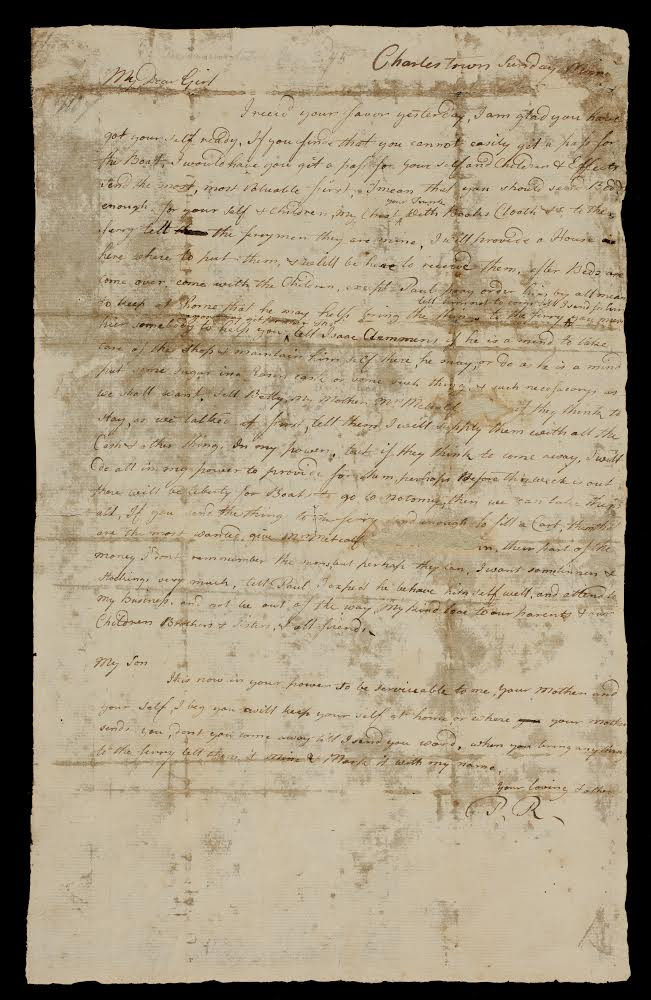 Charlestown Sunday
My Dear Girl
I receid your favor yesterday, I am glad you have
got your self ready. If you find that you cannot easily get a pass for
the Boat, I would have you get a pass for your self and Children & Effects
send the most, most valuable first, I mean that you should send Beds
your Trunk
enough for your self & Children, my Chest, with Books Cloath &c to the
ferry tell the ferrymen they are mine, I will provide a House
here where to put them, & will be here to receive them, after Beds are
come over come with the Children, except Paul pray order him by all means
to keep at home that he may help bring the things to the ferry
tell him not to come till I send for him
hier somebody to help you, tell Isaac Clemmens if he is a mind to take
care of the shop & maintain him self there, he may, or do as he is a mind
put some sugar in a case or some such thing & such necessarys as
we shall want. tell Betty, my Mother, Mrs if they think to
stay, as we talked at first, tell them I will supply them with all the
Cash & other things in my power, but if they think to come away, I will
do all in my power to provide for them, perhaps Before this week is out
there will be liberty for Boats to go to notomy, then we can take them
all, If you send the thing to the ferry send enough to fill a Cart, them that
are the most wanted, give Mrs Metcalf in, their part of the
money I dont remmember the mons, but perhaps they can, I want some linnen &
stockings very much, tell Paul I expect he behave him self well, and attend to
my Business, and not be out of the way, My kind love to our parents & our
Children Brothers & Sisters, & all friends.
My Son
It is now in your power to be serviceable to me, your Mother and
your self, I beg you will keep your self at home or where your mother
sends you, dont you come away till I send you word, when you bring anything
to the ferry tell them it is mine & Mark it with my name.
Your loving Father
P. R.